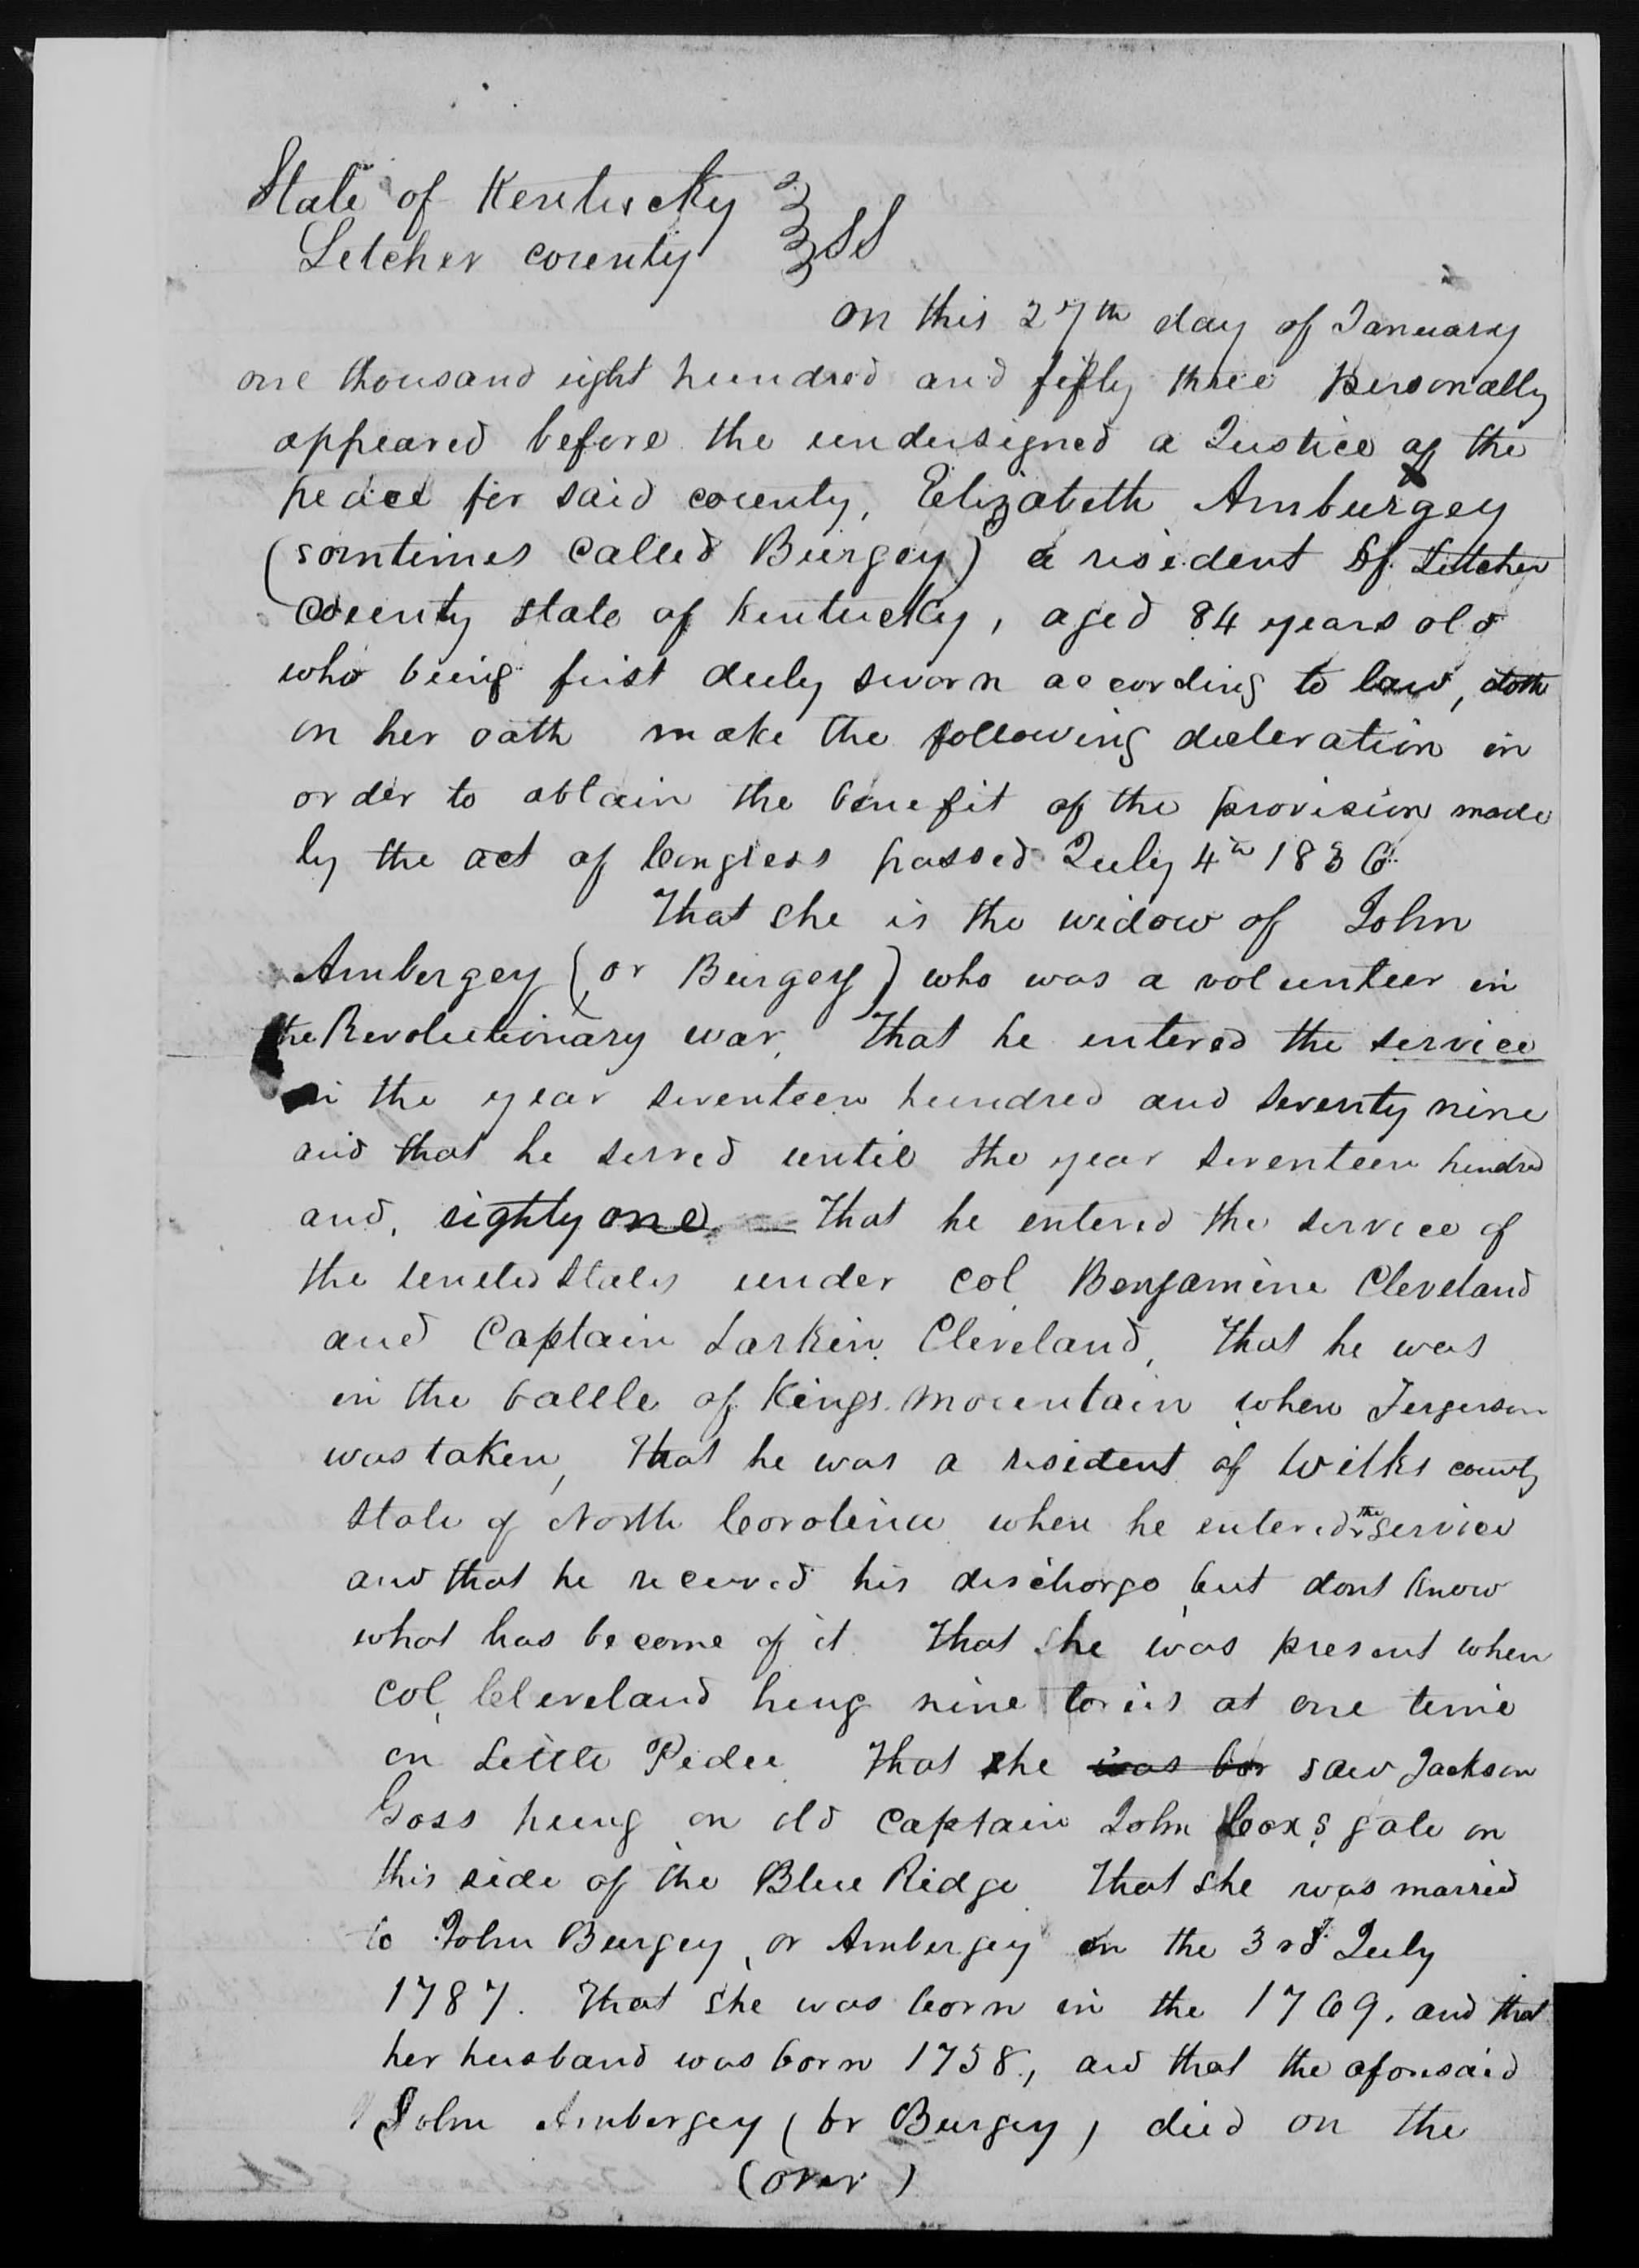 State of Kentucky
Letcher county } SS
on this 27th day of January
one thousand eight hundred and fifty three personally
appeared before the undersigned a Justice of the
peace for said county, Elizabeth Amburgey
(somtimes called Burgey) a resident of Letcher
county state of Kentucky, aged 84 years old
who being first duly sworn according to law, doth
on her oath make the following decleration in
order to obtain the benefit of the provision made
by the act of Congress passed July 4th 1836.
That she is the widow of John
Ambergey (or Burgey) who was a volunteer in
the Revolutionary war, That he entered the service
in the year seventeen hundred and seventy nine
and that he served until the year seventeen hundred
and, eighty one. — That he entered the service of
the united States under col Benjamine Cleveland
and Captain Larkin Cleveland, That he was
in the battle of Kings Mountain when Fergerson
was taken, That he was a resident of Wilks county
State of North Carolina when he entered the service
and that he received his discharge, but dont know
what has become of it. That she was present when
col, Cleveland hung nine tories at one time
on Little Pedee. That she was bor saw Jackson
Goss hung on old Captain John Coxs gate on
this side of the Blue Ridge That she was married
to John Burgey, or Ambergey on the 3rd July
1787. That she was born in the 1769, and that
her husband was born 1758, and that the aforesaid
John Ambergey (or Burgey) died on the
(over)